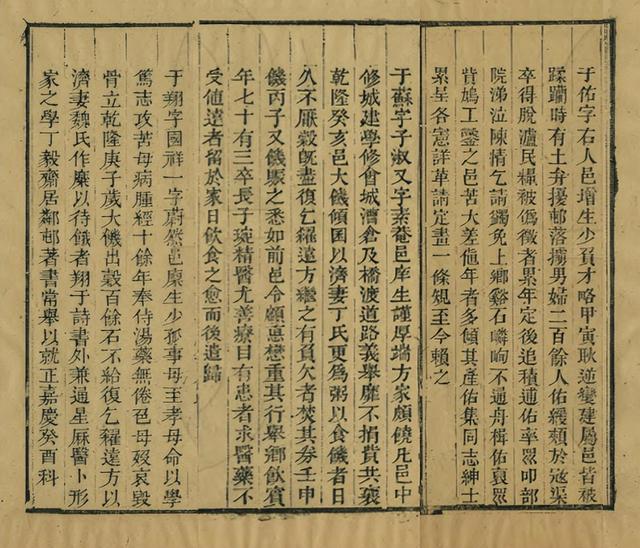 于佑字右人邑增生少負才略甲寅耿逆變建屬邑皆被
蹂躪時有土弁擾邨落擄男婦二百餘人佑緩頰於寇渠
卒得脫瀘民糧被僞徵者累年定後追積逋佑率眾叩部
院涕泣陳情乞請蠲免上鄉谿石嶙峋不通舟楫佑裒眾
貲鳩工鑿之邑苦大差他年者多傾其產佑集同志紳士
累呈各憲詳革請定畫一條規至今賴之
于蘇字子淑又字素菴邑庠生謹厚端方家頗饒凡邑中
修城建學修會城漕倉及橋渡道路義舉靡不捐貲共襄
乾隆癸亥邑大饑傾囷以濟妻丁氏更爲粥以食餓者日
久不厭穀旣盡復乞糴遠方繼之有負欠者焚其券壬申
饑丙子又饑賑之悉如前邑令顧惪懋重其行舉鄉飲賓
年七十有三卒長子琁精醫尤善療目有患者求醫藥不
受値遠者留於家日飲食之愈而後遣歸
于翔字國祥一字蔚然邑廩生少孤事母至孝母命以學
篤志攻苦母病腫經十餘年奉侍湯藥無倦色母歿哀毀
骨立乾隆庚子歲大饑出穀百餘石不給復乞糴遠方以
濟妻魏氏作糜以待餓者翔于詩書外兼通星厤醫卜形
家之學丁毅齋居鄰邨著書常舉以就正嘉慶癸酉科